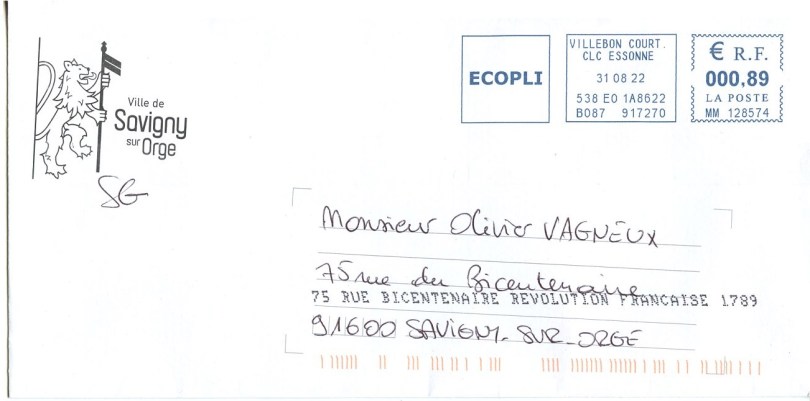 Ville de
Savigny
sur Orge
SG
ECOPLI
VILLEBON COURT.
CLC ESSONNE
31 08 22
538 E0 1A8622
B087 917270
€ R.F.
000,89
LA POSTE
MM 128574
Monsieur Olivier VAGNEUX
75 rue du Bicentenaire
75 RUE BICENTENAIRE REVOLUTION FRANCAISE 1789
91600 SAVIGNY-SUR-ORGE